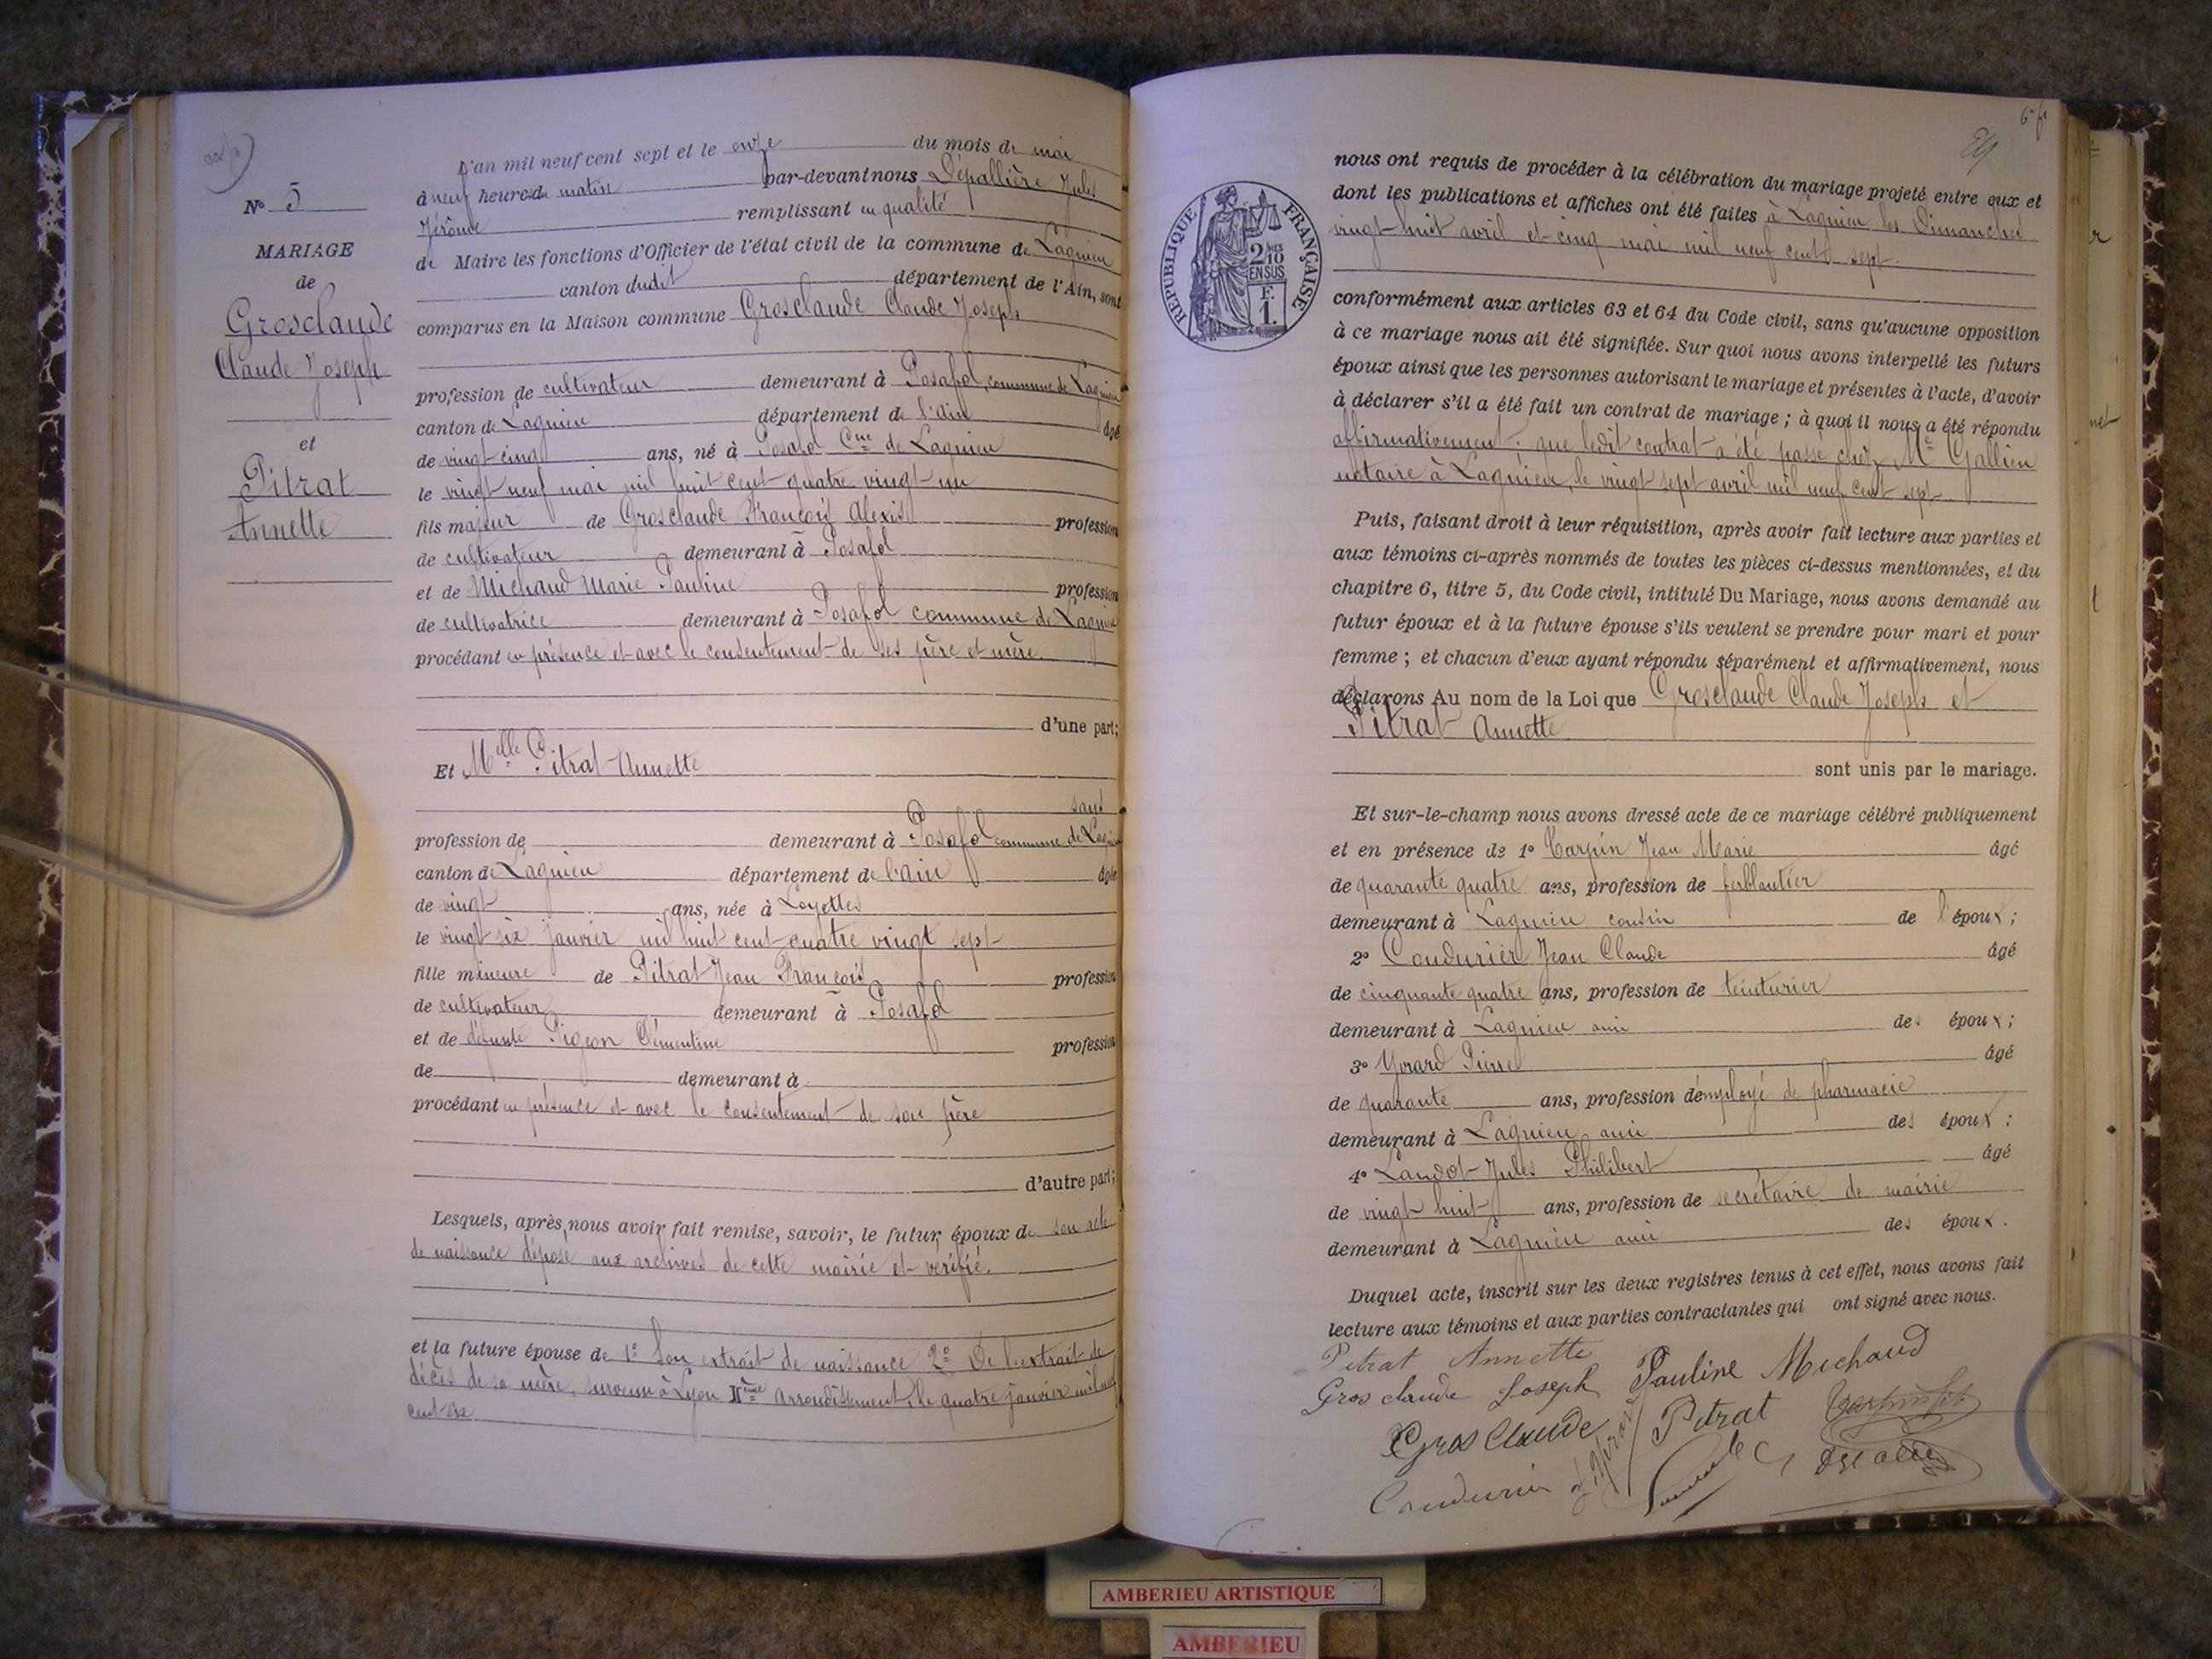 N° 5
MARIAGE
de
Grosclaude
Claude Joseph
et
Pitrat
Annette
L'an mil neuf cent sept et le onze du mois de mai
à neuf heures du matin par-devant nous Dépallière Jules
Jérôme remplissant en qualité
de Maire les fonctions d'Officier de l'état civil de la commune de Lagnieu
canton dudit département de l'Ain, sont
comparus en la Maison commune Grosclaude Claude Joseph
profession de cultivateur demeurant à Posafol, commune de Lagnieu
canton de Lagnieu département de l'ain âgé
de vingt cinq ans, né à Posafol Cne de Lagnieu
le vingt neuf mai mil huit cent quatre vingt un
fils majeur de Grosclaude François Alexis profession
de cultivateur demeurant à Posafol
et de Michaud Marie Pauline profession
de cultivatrice demeurant à Posafol commune de Lagnieu
procédant en présence et avec le consentement de ses père et mère.
d'une part;
Et Melle Pitrat Annette
sans
profession de demeurant à Posafol commune de Lagnieu
canton de Lagnieu département de l'ain âgée
de vingt ans, née à Loyettes
le vingt six janvier mil huit cent quatre vingt sept
fille mineure de Pitrat Jean François profession
de cultivateur demeurant à Posafol
et de défunte Pigeon Clémentine profession
de demeurant à
procédant en présence et avec le consentement de son père
d'autre part;
Lesquels, après nous avoir fait remise, savoir, le futur époux de son acte
de naissance déposé aux archives de cette mairie et vérifié.
et la future épouse de 1° Son extrait de naissance 2° De l'extrait de
décès de sa mère, survenu à Lyon IIème Arrondissement, le quatre janvier mil neuf
cent six
6e fe
RÉPUBLIQUE FRANÇAISE
2/10 MES
EN SUS
F.
1.
nous ont requis de procéder à la célébration du mariage projeté entre eux et
dont les publications et affiches ont été faites à Lagnieu les Dimanches
vingt-huit avril et cinq mai mil neuf cent sept.
conformément aux articles 63 et 64 du Code civil, sans qu'aucune opposition
à ce mariage nous ait été signifiée. Sur quoi nous avons interpellé les futurs
époux ainsi que les personnes autorisant le mariage et présentes à l'acte, d'avoir
à déclarer s'il a été fait un contrat de mariage ; à quoi il nous a été répondu
affirmativement ; que ledit contrat a été passé chez Me Gallien
notaire à Lagnieu, le vingt sept avril mil neuf cent sept.
Puis, faisant droit à leur réquisition, après avoir fait lecture aux parties et
aux témoins ci-après nommés de toutes les pièces ci-dessus mentionnées, et du
chapitre 6, titre 5, du Code civil, intitulé Du Mariage, nous avons demandé au
futur époux et à la future épouse s'ils veulent se prendre pour mari et pour
femme ; et chacun d'eux ayant répondu séparément et affirmativement, nous
déclarons Au nom de la Loi que Grosclaude Claude Joseph et
Pitrat Annette
sont unis par le mariage.
Et sur-le-champ nous avons dressé acte de ce mariage célébré publiquement
et en présence de 1° Carpin Jean Marie âgé
de quarante quatre ans, profession de ferblantier
demeurant à Lagnieu cousin de l'époux ;
2° Coudurier Jean Claude âgé
de cinquante quatre ans, profession de teinturier
demeurant à Lagnieu ami des époux ;
3° Yvrard Pierre âgé
de quarante ans, profession d'employé de pharmacie
demeurant à Lagnieu ami des époux :
4° Landot Jules Philibert âgé
de vingt huit ans, profession de secrétaire de mairie
demeurant à Lagnieu ami des époux.
Duquel acte, inscrit sur les deux registres tenus à cet effet, nous avons fait
lecture aux témoins et aux parties contractantes qui ont signé avec nous.
Pitrat Annette
Gros claude Joseph Pauline Michaud
Gros Claude Pitrat
Coudurier
AMBERIEU ARTISTIQUE
AMBERIEU